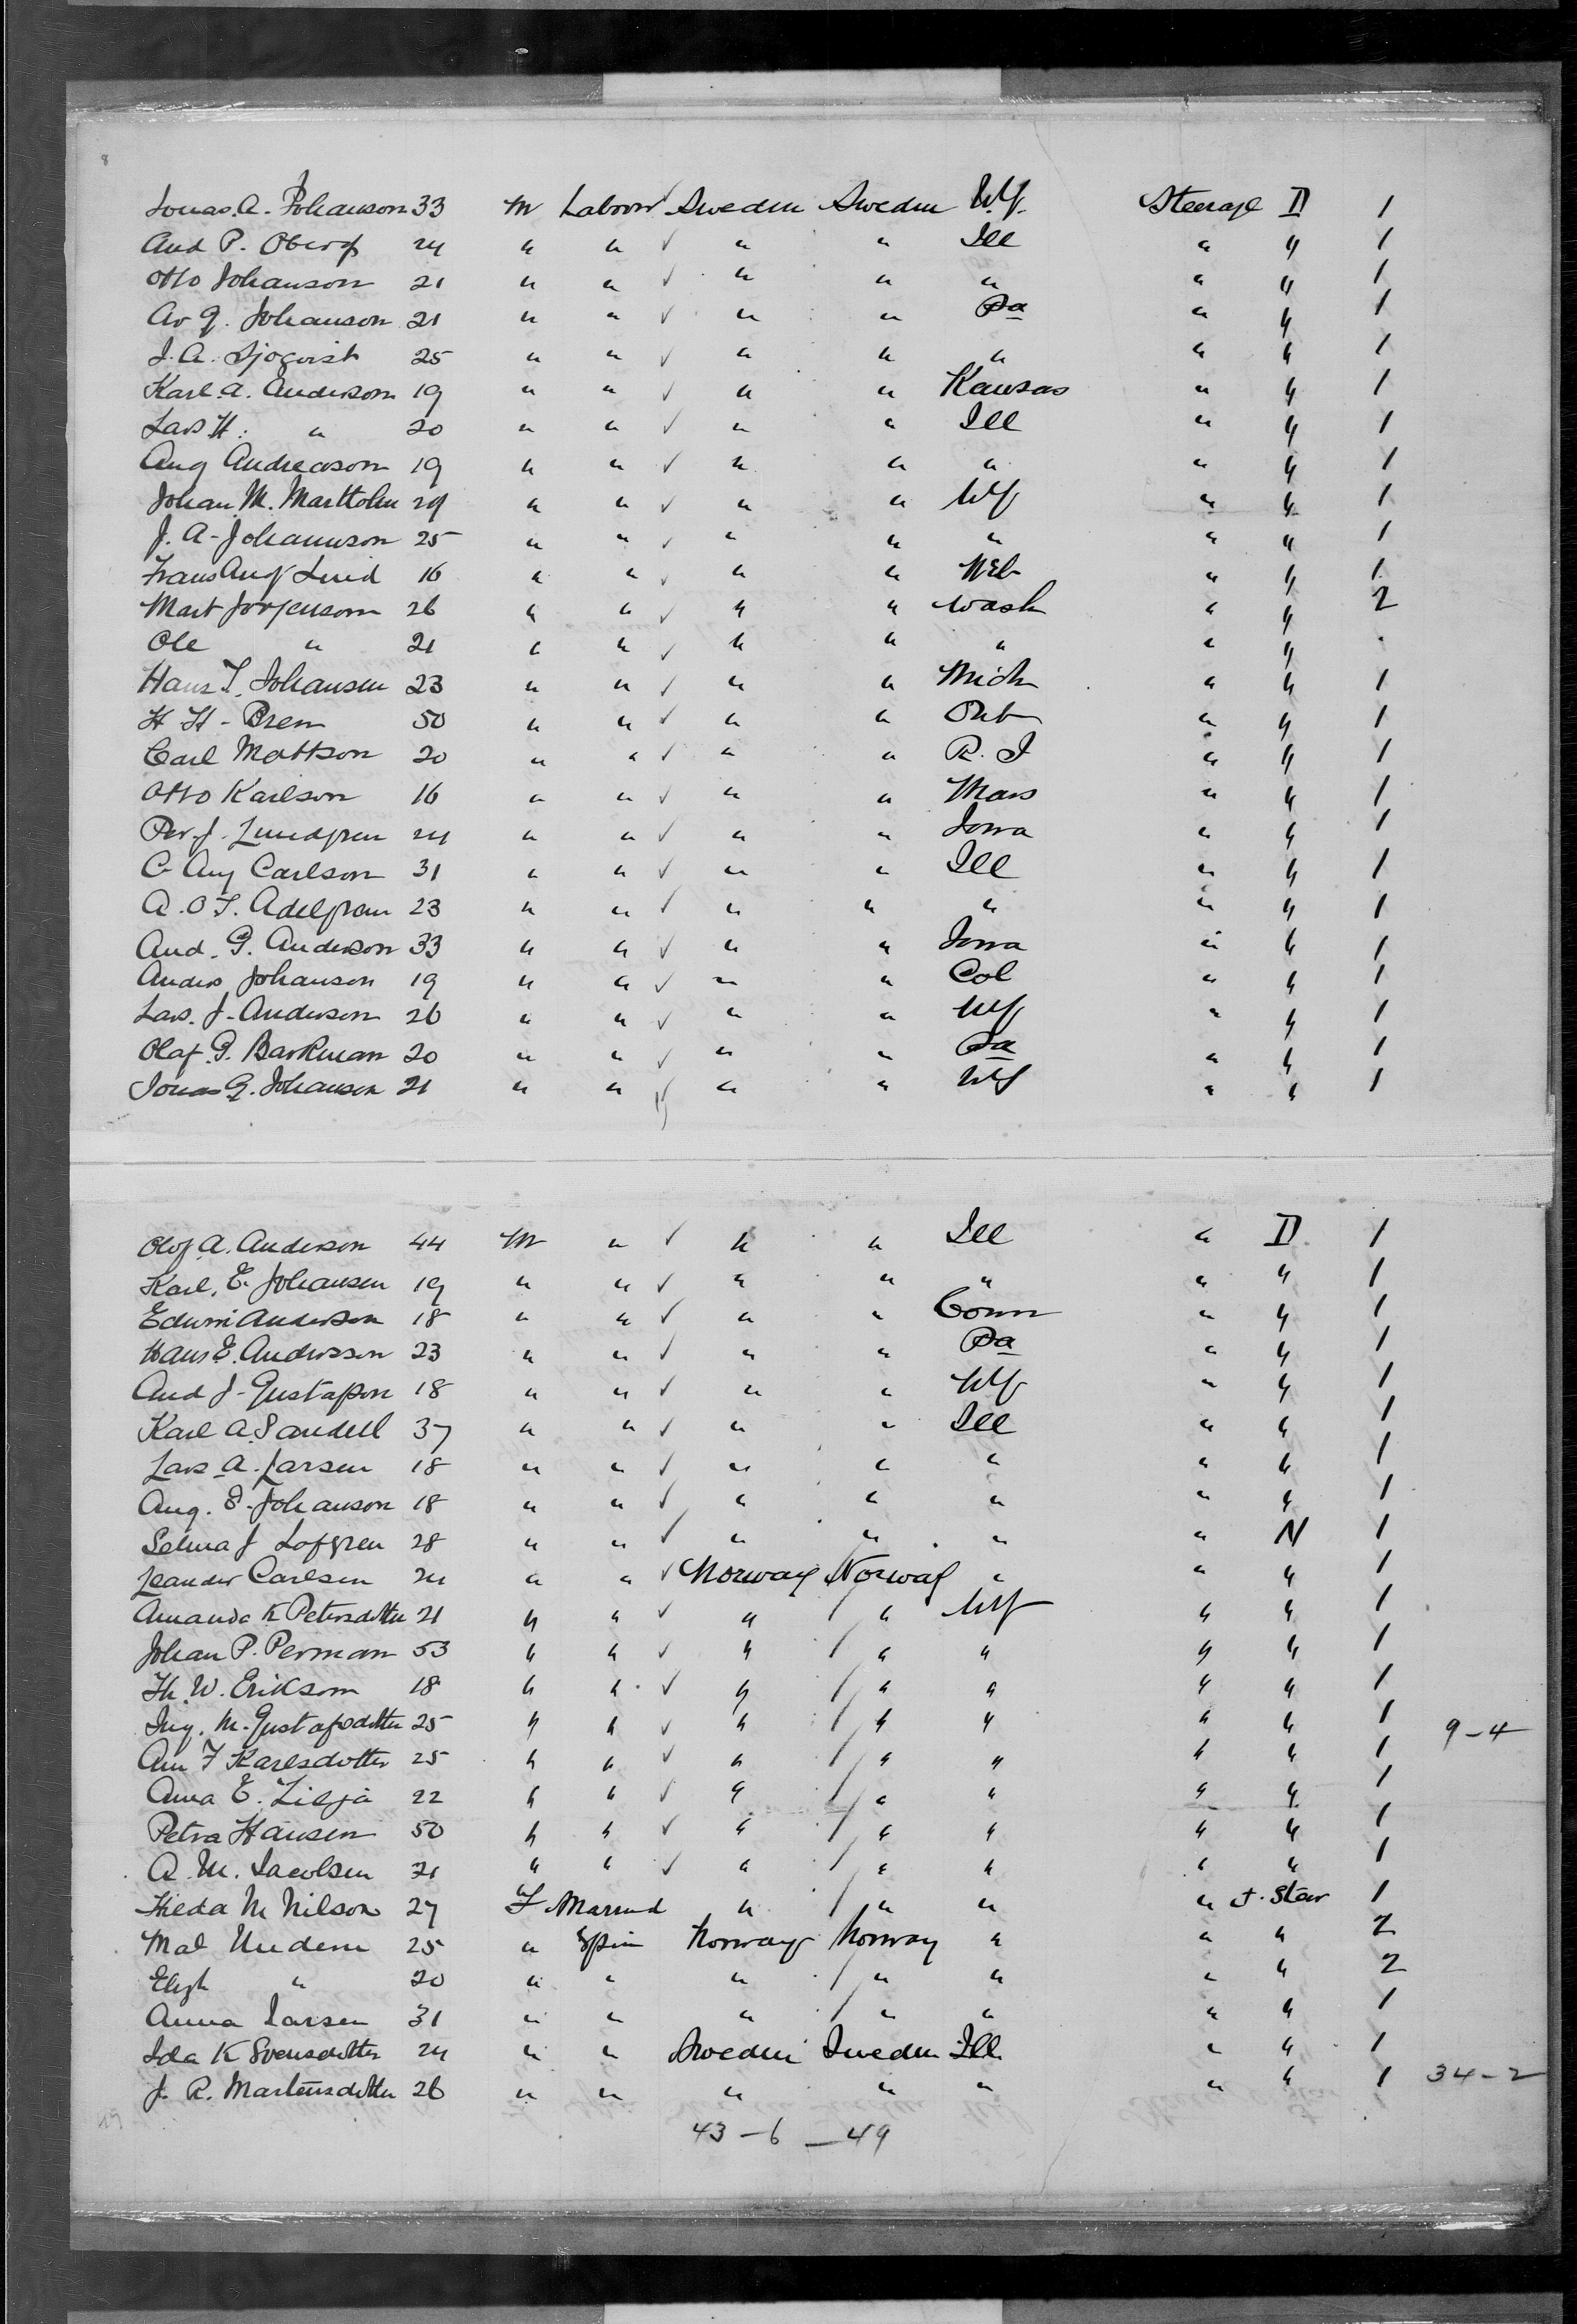 8
Jonas. A. Johanson 33 M Labour Sweden Sweden N.Y. Steerage D 1
And P. Oberg 24 " " " " Ill " " 1
Otto Johanson 21 " " " " " " " 1
Av G. Johanson 21 " " " " Pa " " 1
J. A. Sjoqvist 25 " " " " " " " 1
Karl. A. Anderson 19 " " " " Kansas " " 1
Lars H. " 20 " " " " Ill " " 1
Aug Andreason 19 " " " " " " " 1
Johan. M. Marttolm 29 " " " " NY " " 1
J. A. Johannson 25 " " " " " " " 1
Frans Aug Lind 16 " " " " Neb " " 1
Mart Jorjensom 26 " " " " Wash " " 2
Ole " 21 " " " " " " "
Hans T. Johansen 23 " " " " Mich " " 1
H H - Brem 50 " " " " Ont " " 1
Carl Mattson 20 " " " " R. I " " 1
Otto Karlson 16 " " " " Mass " " 1
Per J. Lundgren 24 " " " " Iowa " " 1
C Aug Carlson 31 " " " " Ill " " 1
A. O F. Adelgren 23 " " " " " " " 1
And. G. Anderson 33 " " " " Iowa " " 1
Anders Johanson 19 " " " " Col " " 1
Lars. J. Anderson 26 " " " " NY " " 1
Olaf. G. Barkman 20 " " " " Pa " " 1
Jonas G. Johanson 21 " " " " NY " " 1
Olof A. Anderson 44 M " " " Ill " D 1
Karl. E. Johansen 19 " " " " " " " 1
Edwin Anderson 18 " " " " Conn " " 1
Hans E. Andersson 23 " " " " Pa " " 1
And J - Gustafson 18 " " " " NY " " 1
Karl A. Sandell 37 " " " " Ill " " 1
Lars A. Larsen 18 " " " " " " " 1
Aug. E. Johanson 18 " " " " " " " 1
Selma J Lofgren 28 " " " " " " N 1
Leander Carlsen 24 " " Norway Norway " " " 1
Amanda K Petersdotter 21 " " " " NY " " 1
Johan P. Perman 53 " " " " " " " 1
Th. W. Erikson 18 " " " " " " " 1
Ing. M. Gustafsdotter 25 " " " " " " " 1 9-4
Am F Karlsdotter 25 " " " " " " " 1
Anna E. Lilja 22 " " " " " " " 1
Petra Hansen 50 " " " " " " " 1
A. M. Jacobsen 21 " " " " " " " 1
Hilda M Nilson 27 F Married " " " " J. Star 1
Mal Undem 25 " Spin Norway Norway " " " 2
Elizh " 20 " " " " " " " 2
Anna Larsen 31 " " " " " " " 1
Ida K Svensdotter 24 " " Sweden Sweden Ill " " 1
J. R. Martensdotter 26 " " " " " " " 1 34-2
43-6-49